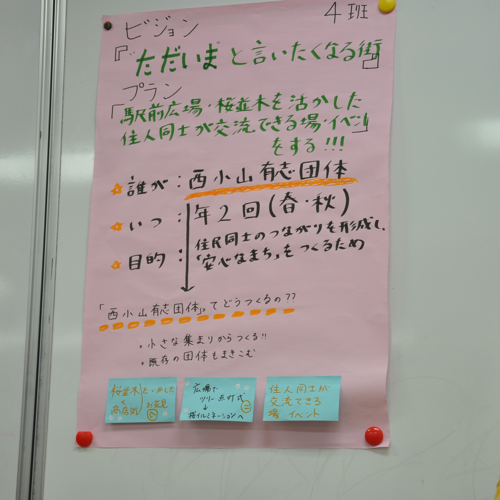 4班
ビジョン
『"ただいま"と言いたくなる街』
プラン
「駅前広場・桜並木を活かした
住人同士が交流できる場・イベント」
をする!!!
誰が:西小山有志団体
いつ:年2回(春・秋)
目的:住民同士のつながりを形成し、
「安心なまち」をつくるため
「西小山有志団体」ってどうつくるの??
・小さな集まりからつくる!!
・既存の団体もまきこむ
桜並木
商店街
といかした
お花見
広場で
ツリー点灯式
↓
桜イルミネーションへ
住人同士が
交流できる
場 イベント